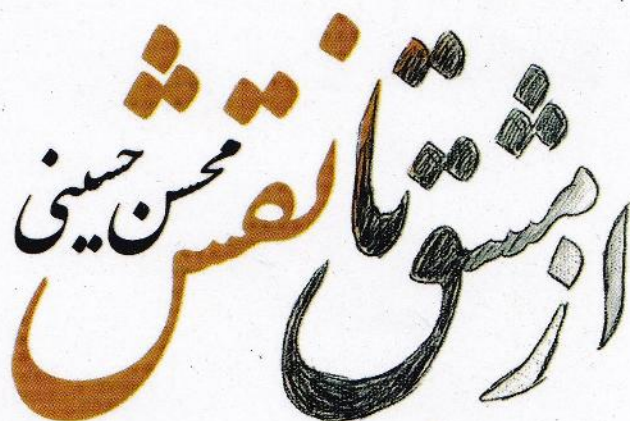 از مشق تا نقش
محسن حسینی